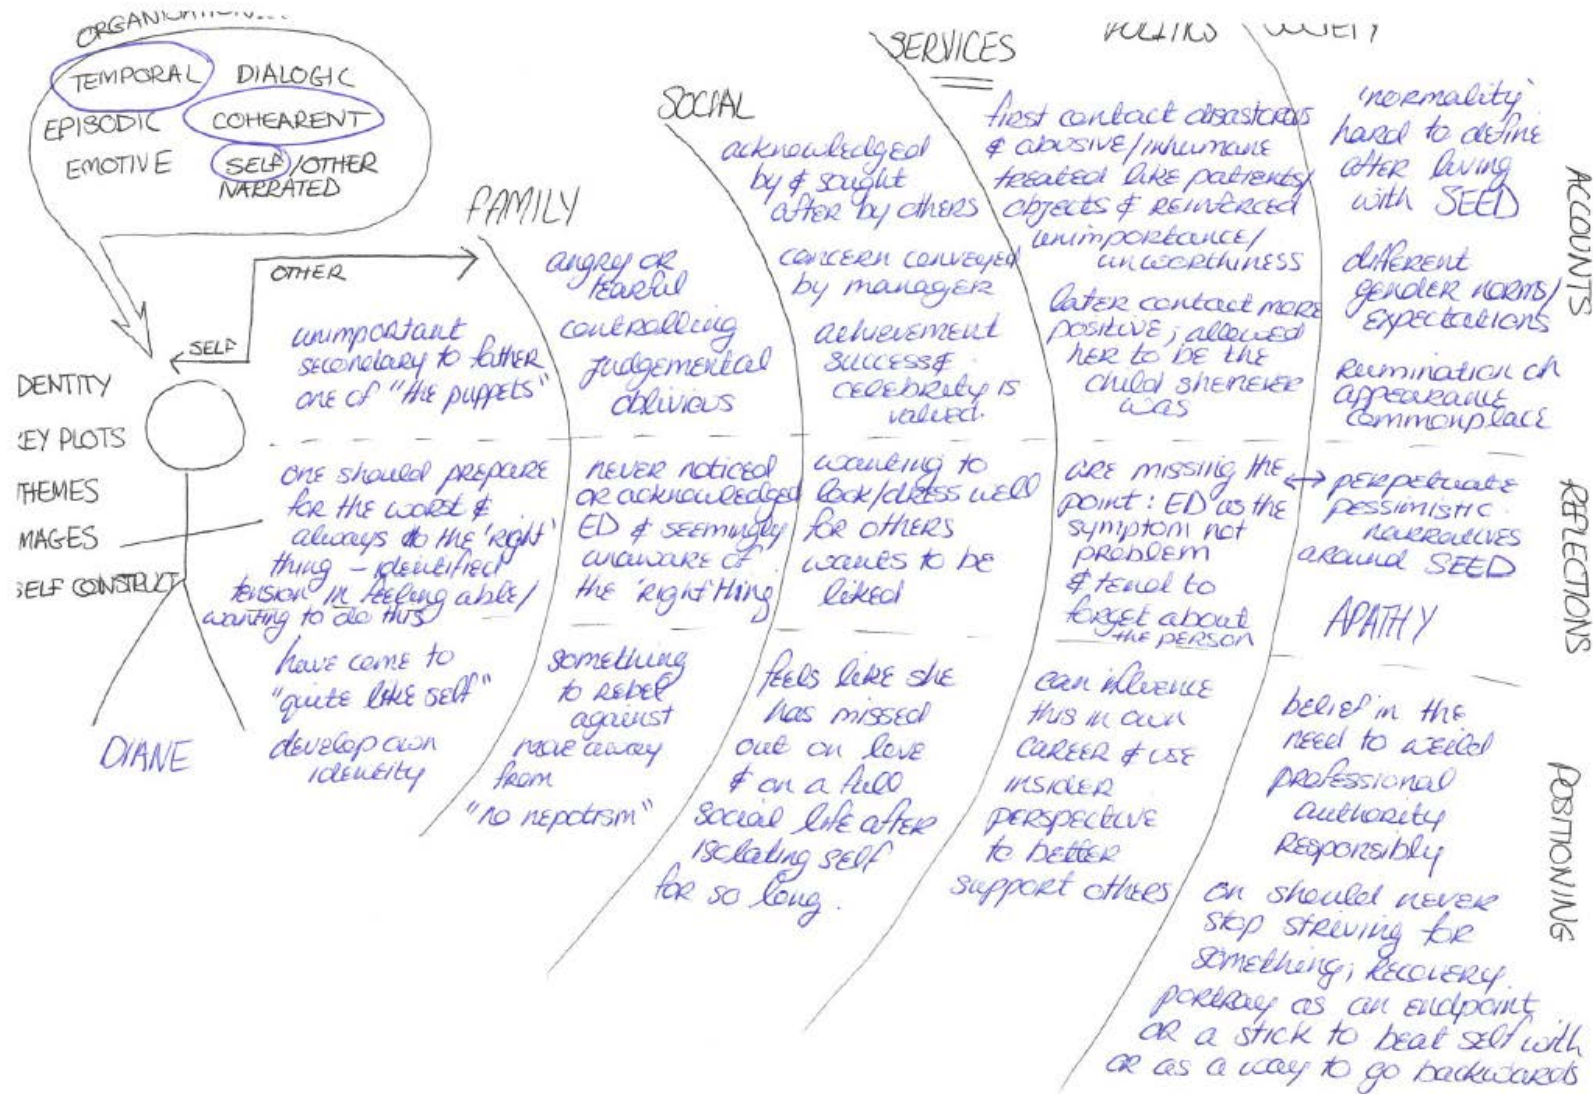 ORGANISATION...
TEMPORAL DIALOGIC
EPISODIC COHEARENT
EMOTIVE SELF/OTHER
NARRATED
OTHER
SELF
DENTITY
EY PLOTS
THEMES
MAGES
SELF CONSTRUCT
DIANE
unimportant
secondary to father
one of "the puppets"
one should prepare
for the worst &
always do the 'right'
thing – identified
tension in feeling able/
wanting to do this
have come to
"quite like self"
develop own
identity
FAMILY
angry or
tearful
controlling
judgemental
oblivious
never noticed
or acknowledged
ED & seemingly
unaware of
the 'right' thing
something
to rebel
against
move away
from
"no nepotism"
SOCIAL
acknowledged
by & sought
after by others
concern conveyed
by manager
achievement
success &
celebrity is
valued.
wanting to
look/dress well
for others
wants to be
liked
feels like she
has missed
out on love
& on a full
social life after
isolating self
for so long.
SERVICES
first contact disastorus
& abusive/inhumane
treated like patients/
objects & reinforced
unimportance/
unworthiness
later contact more
positive; allowed
her to be the
child she never
was
are missing the
point: ED as the
symptom not
problem
& tend to
forget about
the person
can influence
this in own
career & use
insider
perspective
to better
support others
POLITICS SOCIETY
'normality'
hard to define
after living
with SEED
different
gender norms/
expectations
Rumination on
appearance
commonplace
perpetuate
pessimistic
narratives
around SEED
APATHY
belief in the
need to weild
professional
authority
responsibly
on should never
stop striving for
something; recovery
portray as an endpoint
or a stick to beat self with
or as a way to go backwards
ACCOUNTS
REFLECTIONS
POSITIONING